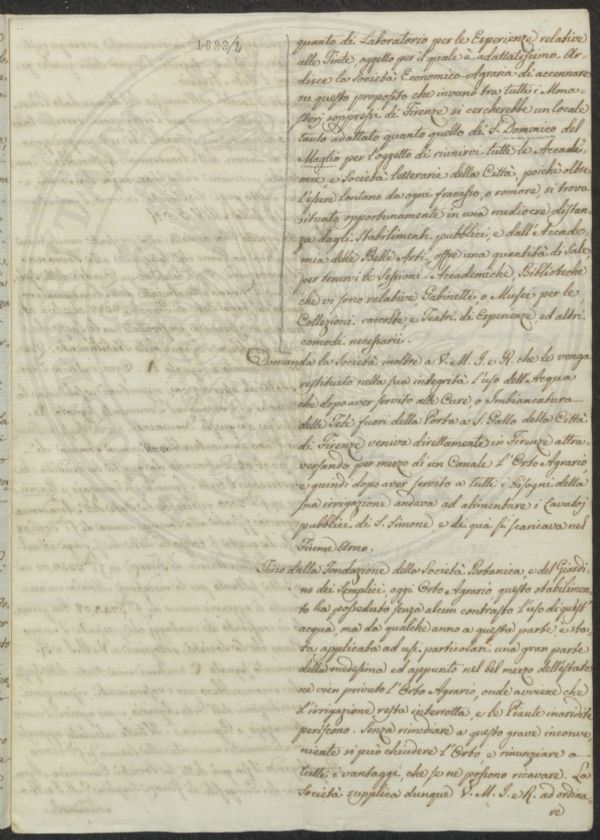 1683/2
quanto di Laboratorio per le Esperienze relative
alle Tinte, oggetto per il quale è adattatissimo. Ar-
disce la Società Economico-Agraria di accennare
su questo proposito che invano tra tutti i Mona-
sterj soppressi di Firenze si cercherebbe un locale
tanto adattato quanto quello di S. Domenico del
Maglio per l'oggetto di riunirvi tutte le Accade-
mie, e Società letterarie della Città, poichè oltre
l'essere lontano da ogni fracasso, o romore, si trova
situato opportunamente in una mediocre distan-
za dagli Stabilimenti pubblici, e dall'Accade-
mia delle Belle Arti, offre una quantità di Sale
per tenervi le Sessioni Accademiche, Biblioteche
che vi sono relative Gabinetti, o Musei per le
Collezioni, raccolte, e Teatri di Esperienze ed altri
comodi necessarii.
Domanda la Società inoltre a V. M. I. e R. che le venga
restituito nella sua integrità l'uso dell'Acqua
che dopo aver servito alle Cure o Imbiancatura
delle Tele fuori della Porta a S. Gallo della Città
di Firenze veniva direttamente in Firenze attra-
versando per mezzo di un Canale l'Orto Agrario
e quindi dopo aver servito a tutti i bisogni della
sua irrigazione andava ad alimentare i Lavatoj
pubblici di S. Simone e di quà si scaricava nel
Fiume Arno.
Fino dalla Fondazione della Società Botanica e del Giardi-
no dei Semplici, oggi Orto Agrario questo stabilimen-
to ha posseduto senza alcun contrasto l'uso di quest'
acqua, ma da qualche anno a questa parte è sta-
ta applicata ad usi particolari una gran parte
della medesima ed appunto nel bel mezzo dell'estate
ne vien privato l'Orto Agrario, onde avviene che
l'irrigazione resta interrotta, e le Piante inaridite
periscono. Senza rimediare a questo grave inconve-
niente si può chiudere l'Orto e rinunziare a
tutti i vantaggi, che se ne possono ricavare. La
Società supplica dunque V. M. I. e R. ad ordina-
re